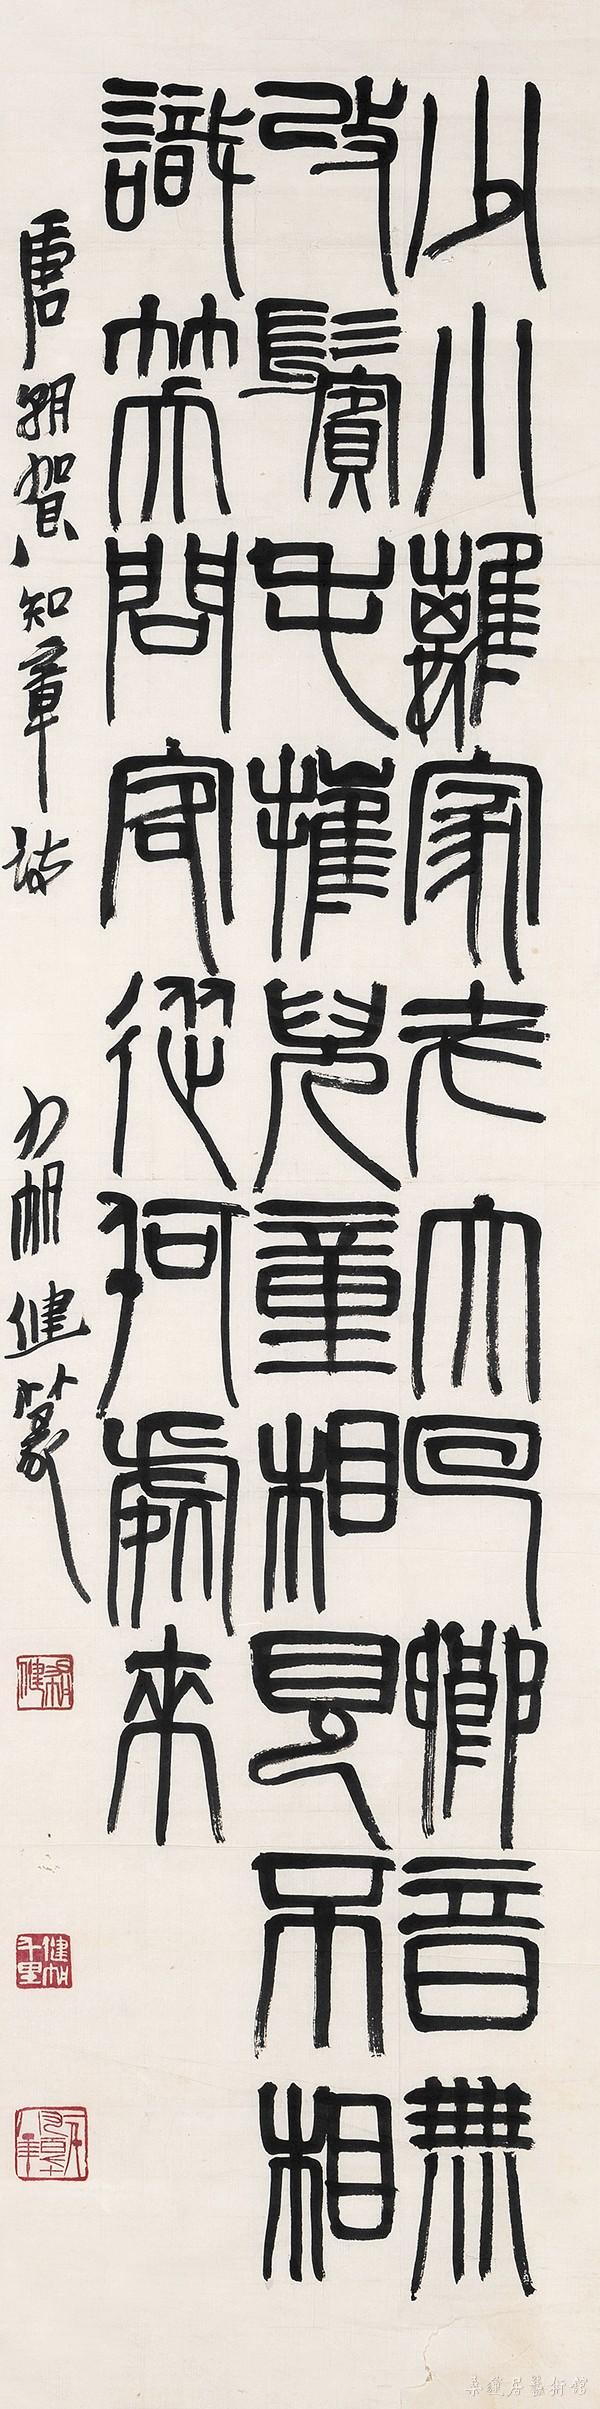 少小離家老大回鄉音無
改鬢毛摧兒童相見不相
識笑問客從何處來
唐朝賀知章詩
帆健篆
桑蓮居藝術館